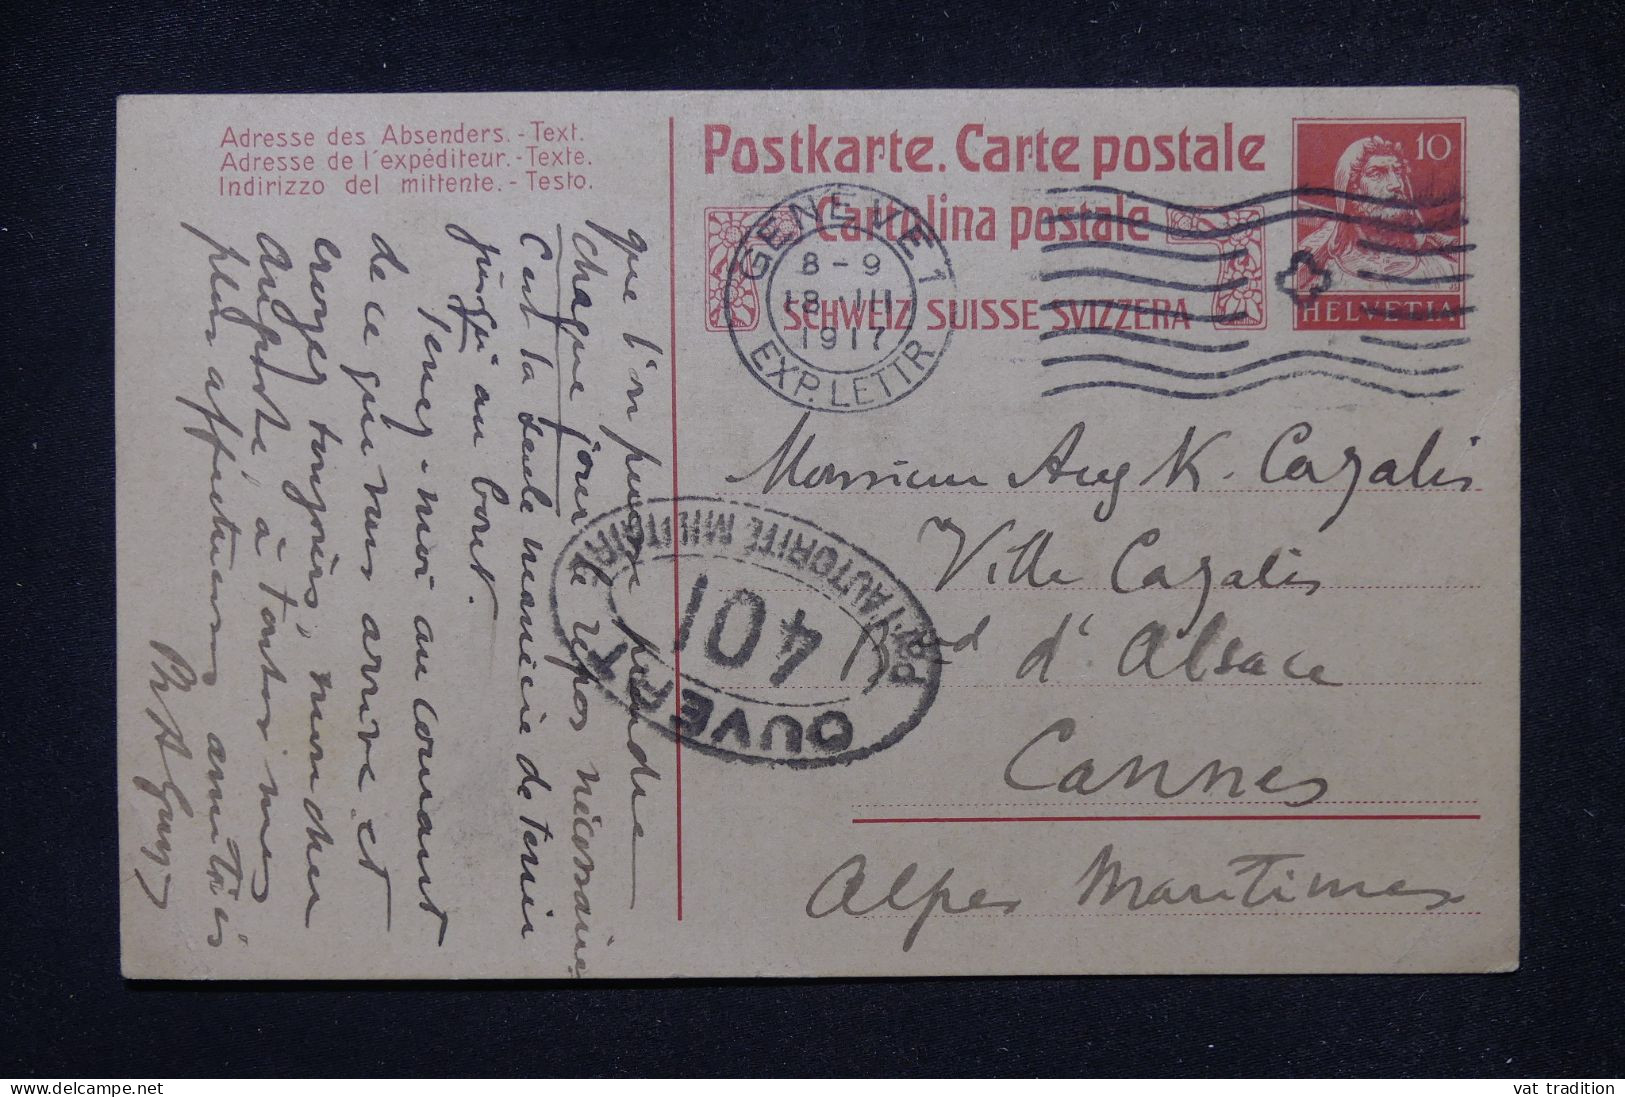 Adresse des Absenders. - Text.
Adresse de l'expéditeur. - Texte.
Indirizzo del mittente. - Testo.
Postkarte. Carte postale
Cartolina postale
SCHWEIZ SUISSE SVIZZERA
10
HELVETIA
GENÈVE 1
8-9
18 III
1917
EXP. LETTR
Monsieur Aug K. Cazalis
Ville Cazalis
Bd d'Alsace
Cannes
Alpes Maritimes
OUVERT
401
PAR L'AUTORITÉ MILITAIRE
que l'on puisse prendre
chaque jour le repos nécessaire
C'est la seule manière de tenir
jusqu'au bout.
Tenez-moi au courant
de ce qui vous arrive et
croyez toujours, mon cher
Auguste à toutes mes
plus affectueuses amitiés
vat tradition
www.delcampe.net